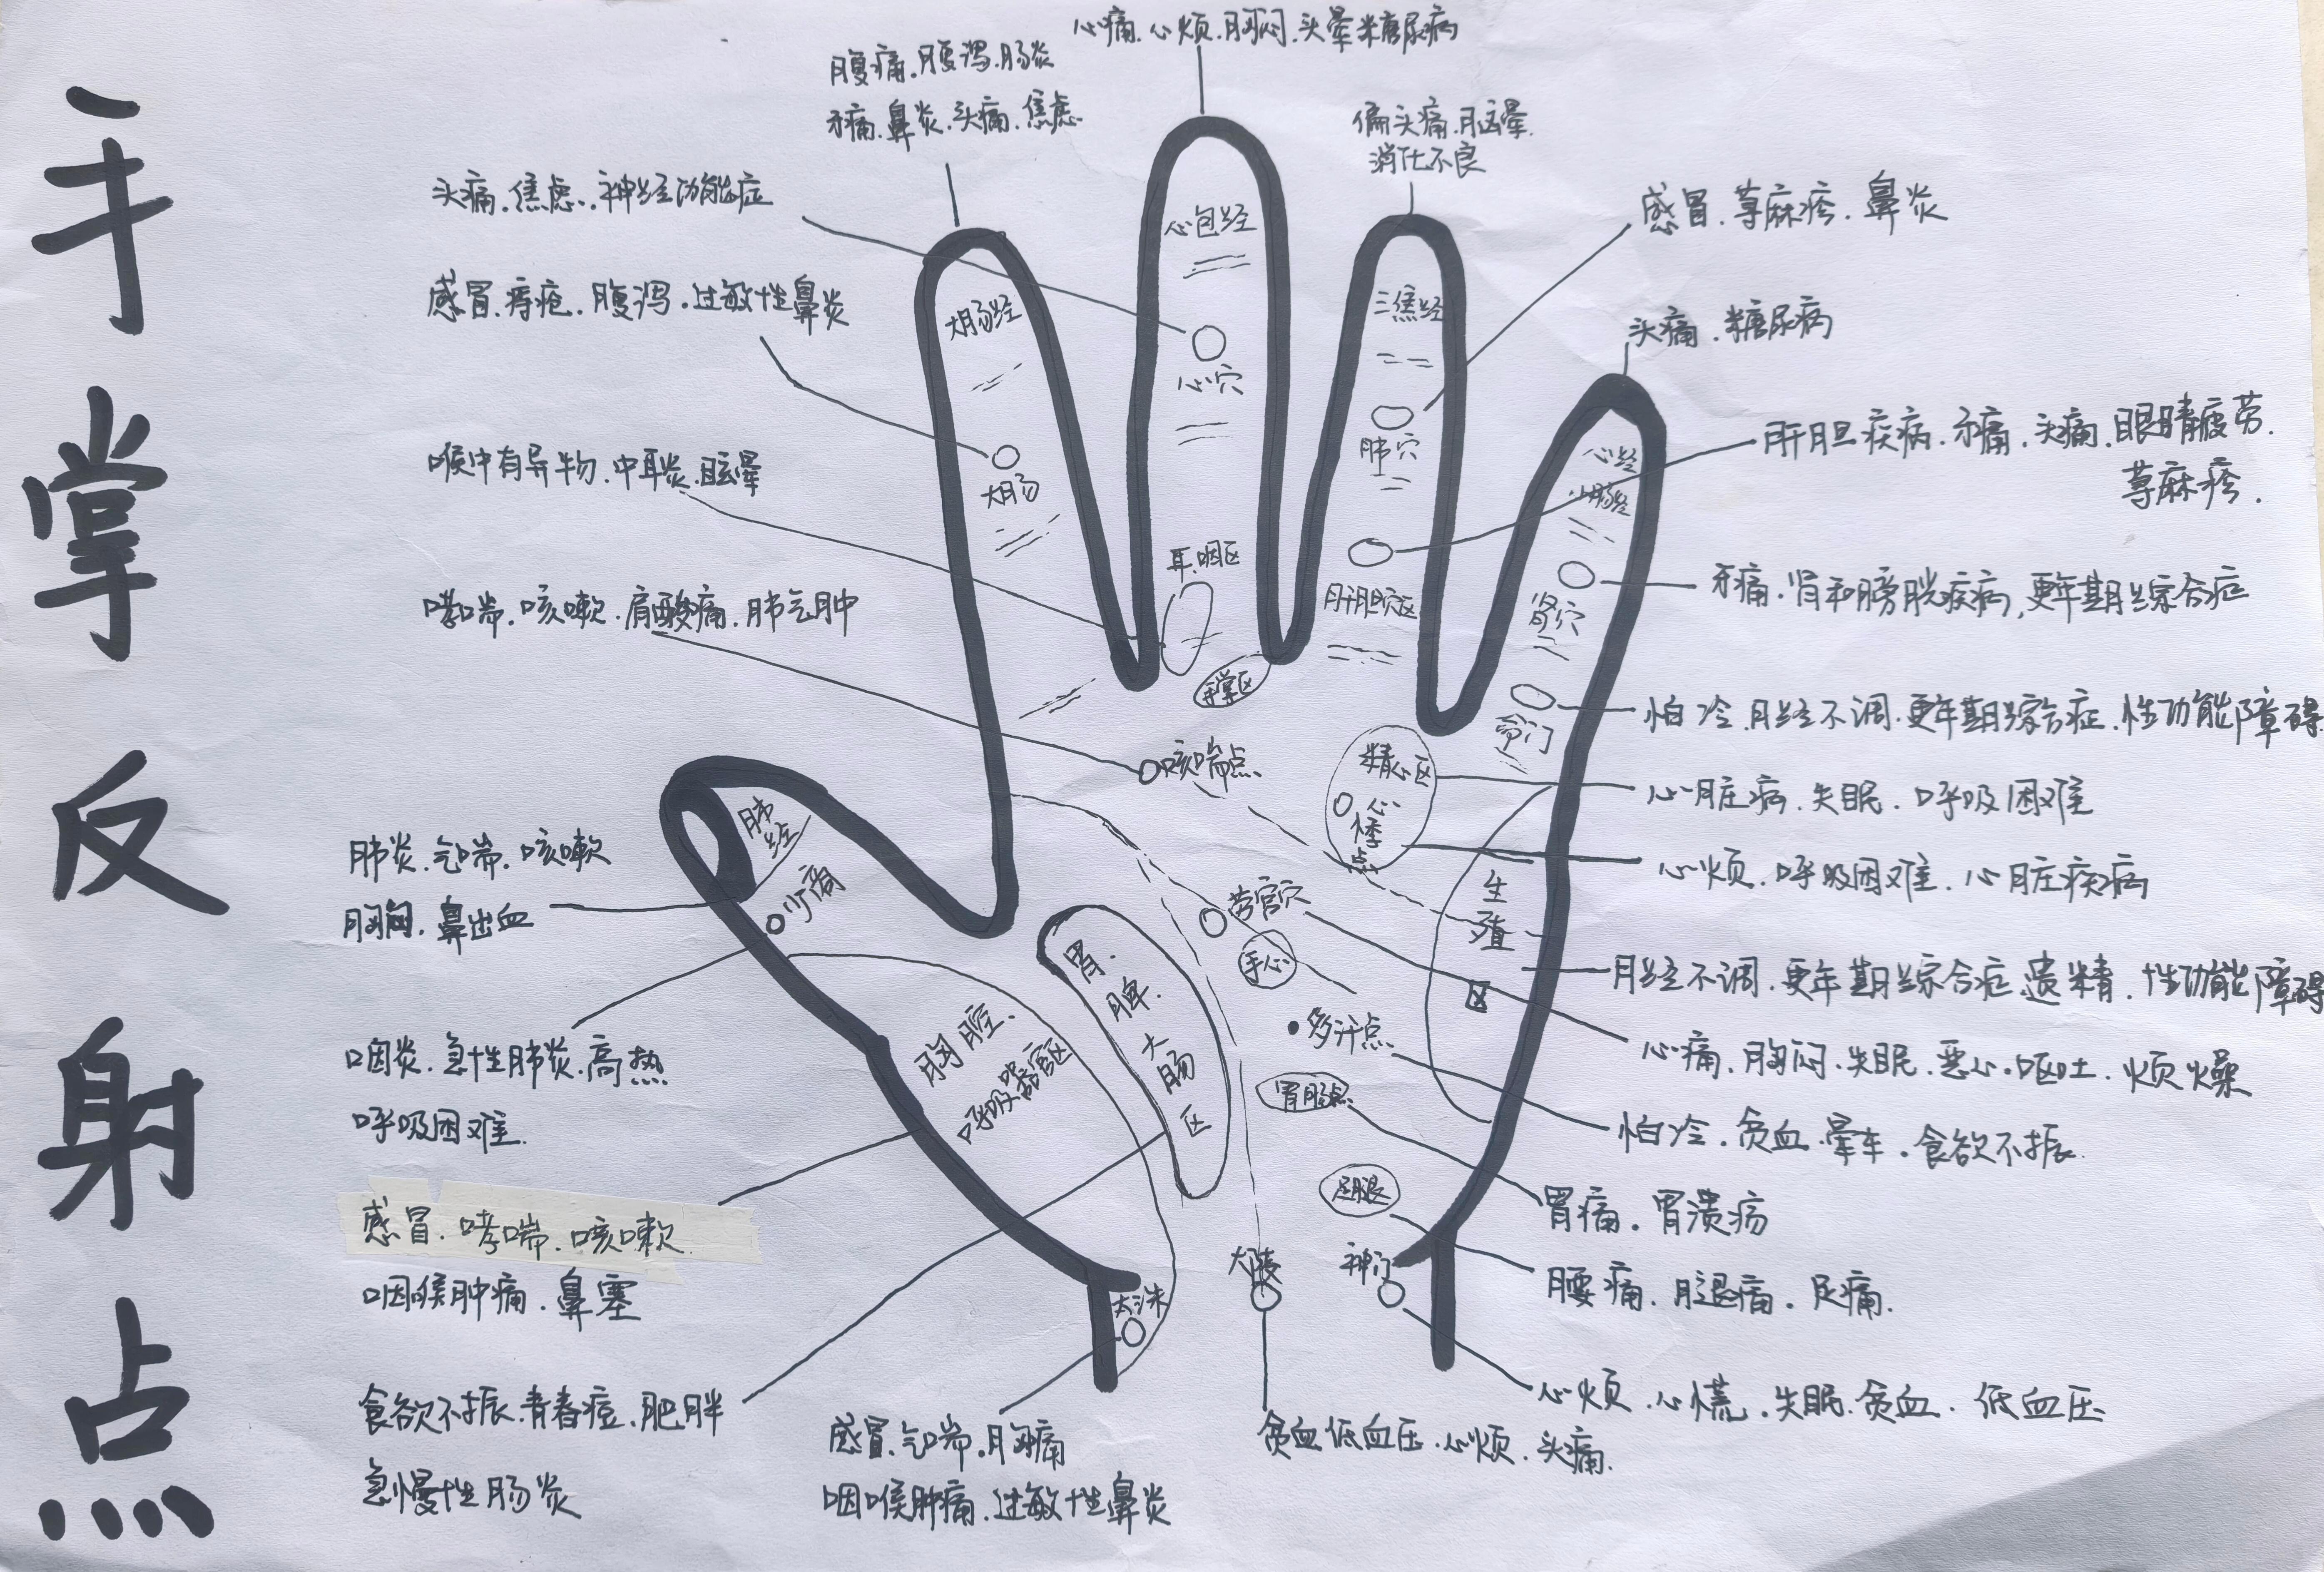 手掌反射点
心痛.心烦.胸闷.头晕糖尿病
腹痛.腹泻.肠炎
牙痛.鼻炎.头痛.焦虑
偏头痛.脑晕.
消化不良
头痛.焦虑..神经功能症
感冒.荨麻疹.鼻炎
感冒.痔疮.腹泻.过敏性鼻炎
头痛.糖尿病
喉中有异物.中耳炎.眩晕
肝胆疾病.牙痛.头痛.眼睛疲劳.
荨麻疹.
哮喘.咳嗽.肩酸痛.肺气肿
牙痛.肾和膀胱疾病,更年期综合症
怕冷.月经不调.更年期综合症.性功能障碍
心脏病.失眠.呼吸困难
肺炎.气喘.咳嗽
胸闷.鼻出血
心烦.呼吸困难.心脏疾病
月经不调.更年期综合症.遗精.性功能障碍
咽炎.急性肺炎.高热
呼吸困难.
心痛.胸闷.失眠.恶心.呕吐.烦燥
怕冷.贫血.晕车.食欲不振.
感冒.哮喘.咳嗽.
咽喉肿痛.鼻塞
胃痛.胃溃疡
腰痛.腿痛.足痛.
食欲不振.青春痘.肥胖
急慢性肠炎
感冒.气喘.胸痛
咽喉肿痛.过敏性鼻炎
贫血低血压.心烦.头痛.
心烦.心慌.失眠.贫血.低血压
心包经
心穴
大肠经
大肠
三焦经
肺穴
肝胆穴区
心经
小肠经
肾穴
命门
耳.咽区
手掌区
咳喘点
精心区
心悸点
肺经
少商
劳宫穴
手心
生殖区
胃.脾.大肠区
胸腔.
呼吸器官区
多汗点
胃肠点
足腿
大陵
神门
太渊